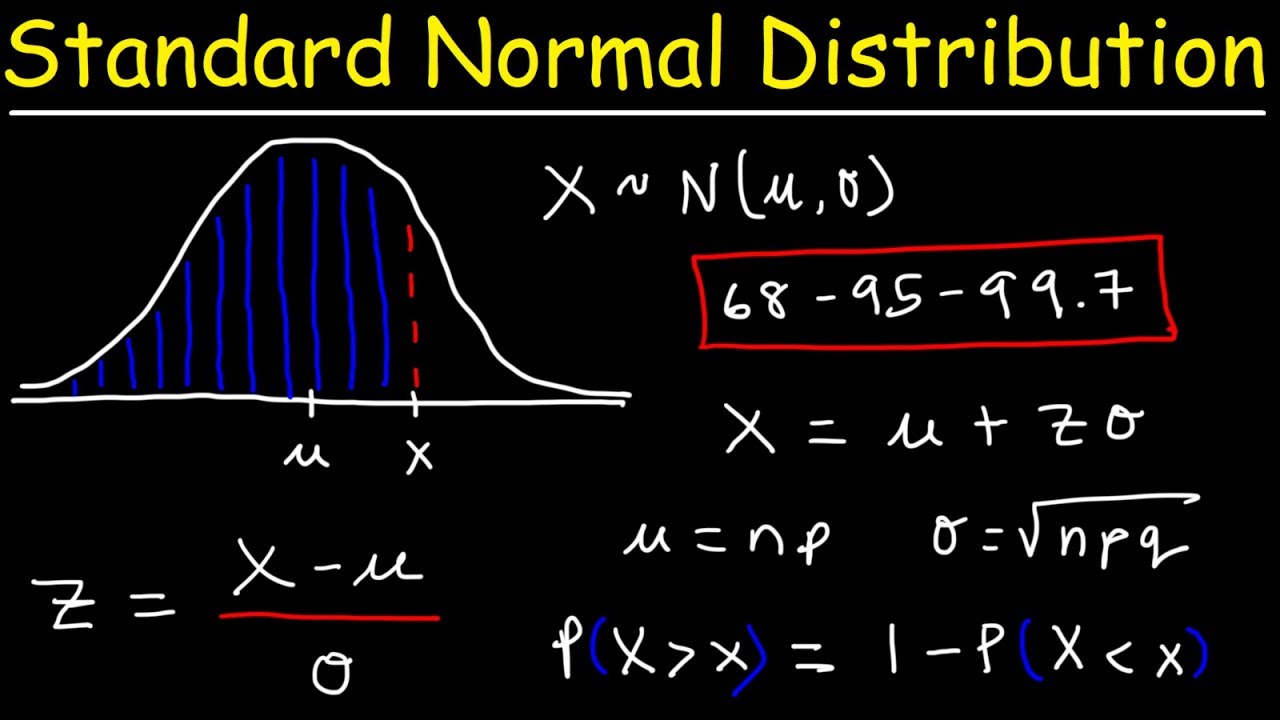 Standard Normal Distribution
X ~ N(μ, σ)
68 - 95 - 99.7
X = μ + zσ
μ x
μ = np σ = √npq
z = X - μ / σ
P(X > x) = 1 - P(X < x)